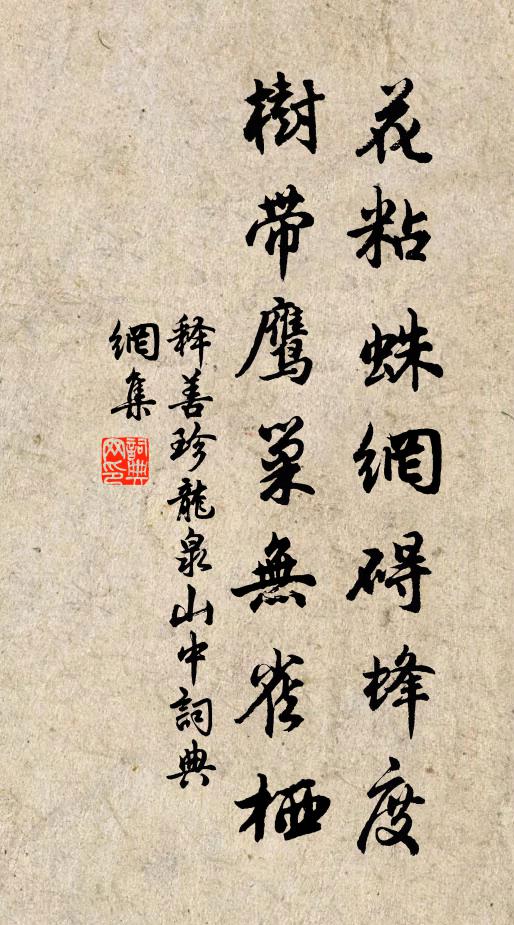 花粘蛛網碍蜂度
樹帶鷹巢無雀栖
释善珍龍泉山中詞典
網集
詞典網印